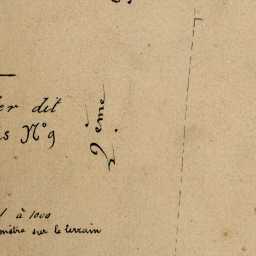 er dit
s N° 9
2 ème
1 à 1000
mètre sur le terrain